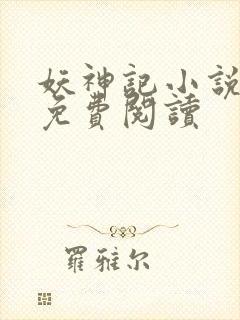 妖神記小說
免費閱讀
羅雅尔